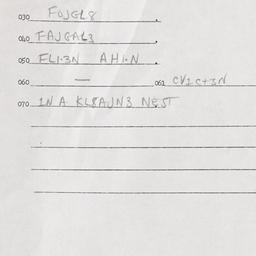 030 FOJGL8.
040 FAJGAL3.
050 FLI·3N AHI·N.
060 — 061 CV1C+3N
070 1N A KL8AJN3 NEST